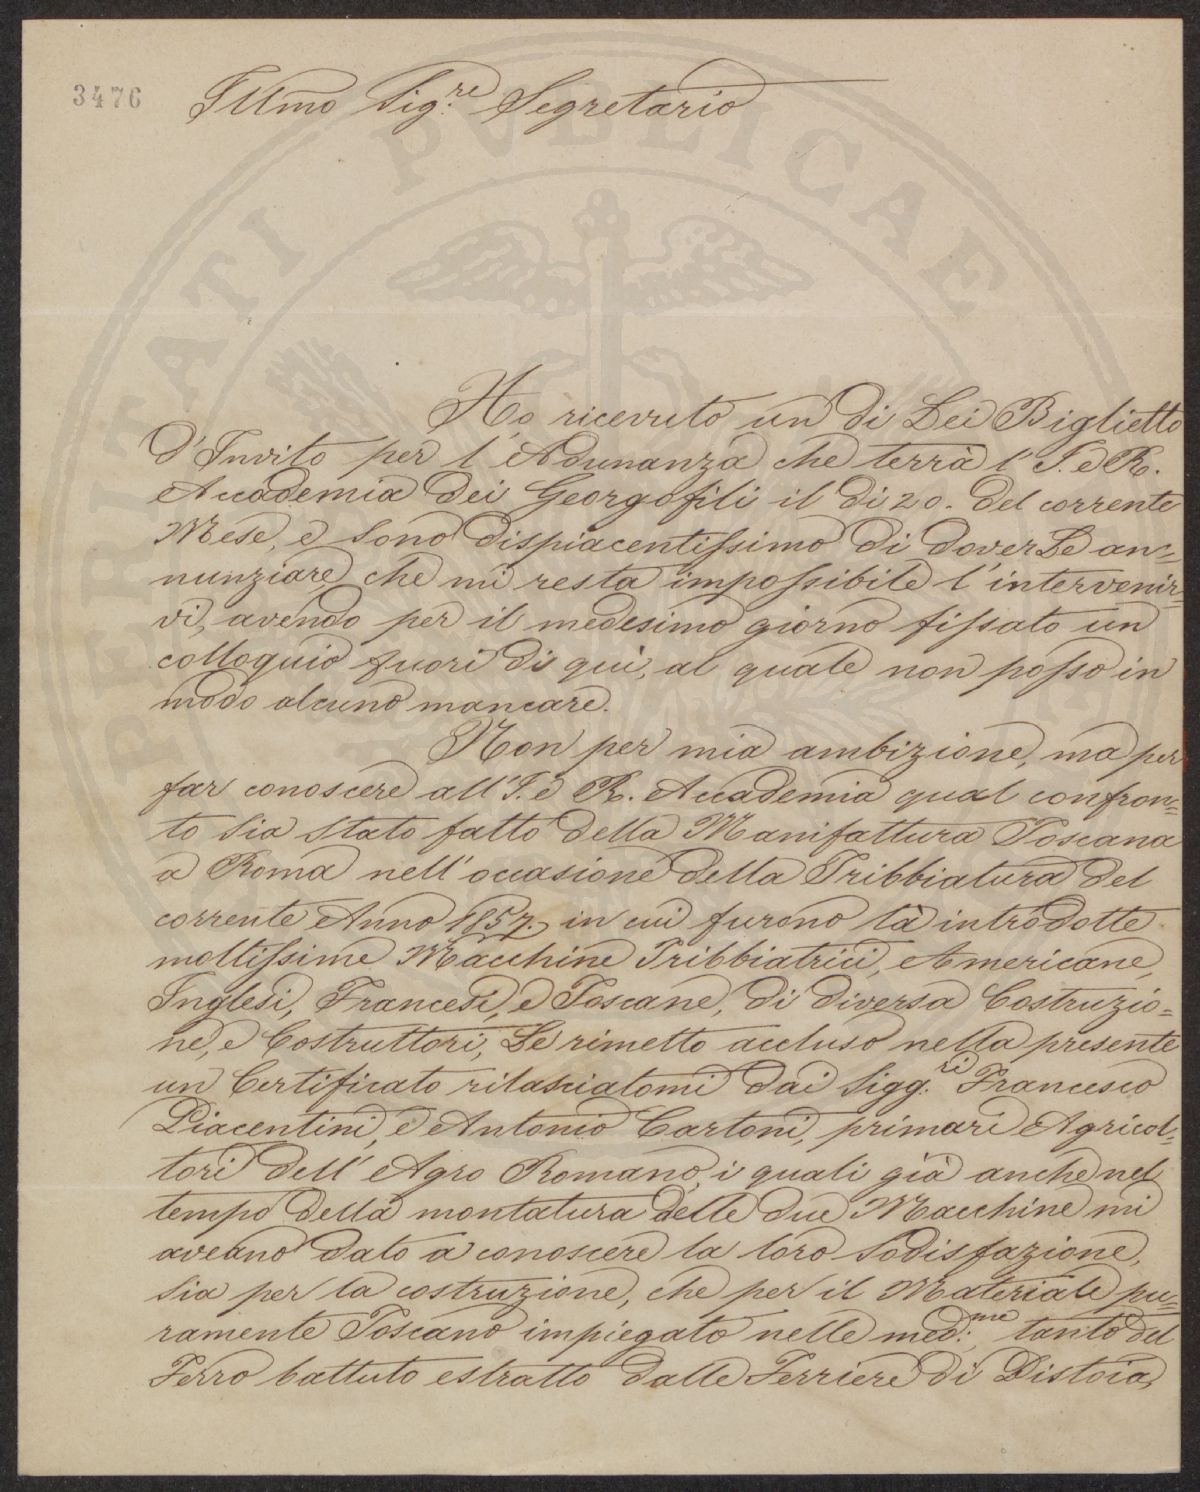 3476
Illmo Sig.re Segretario
Ho ricevuto un di Lei Biglietto
d'Invito per l'Adunanza che terrà l'I. e R.
Accademia dei Georgofili il dì 20. del corrente
Mese, e sono dispiacentissimo di doverLe an=
nunziare che mi resta impossibile l'intervenir=
vi, avendo per il medesimo giorno fissato un
colloquio fuori di qui, al quale non posso in
modo alcuno mancare.
Non per mia ambizione, ma per
far conoscere all'I. e R. Accademia qual confron=
to sia stato fatto della Manifattura Toscana
a Roma nell'occasione della Tribbiatura del
corrente Anno 1857. in cui furono là introdotte
moltissime Macchine Tribbiatrici, Americane,
Inglesi, Francesi, e Toscane, di diversa Costruzio=
ne, e Costruttori, Le rimetto accluso nella presente
un Certificato rilasciatomi dai Sigg.ri Francesco
Piacentini, e Antonio Cartoni, primari Agricol=
tori dell'Agro Romano, i quali già anche nel
tempo della montatura delle due Macchine mi
aveano dato a conoscere la loro sodisfazione,
sia per la costruzione, che per il Materiale pu=
ramente Toscano impiegato nelle med:me tanto del
Ferro battuto estratto dalle Ferriere di Pistoia,
PERITATI PVBLICAE